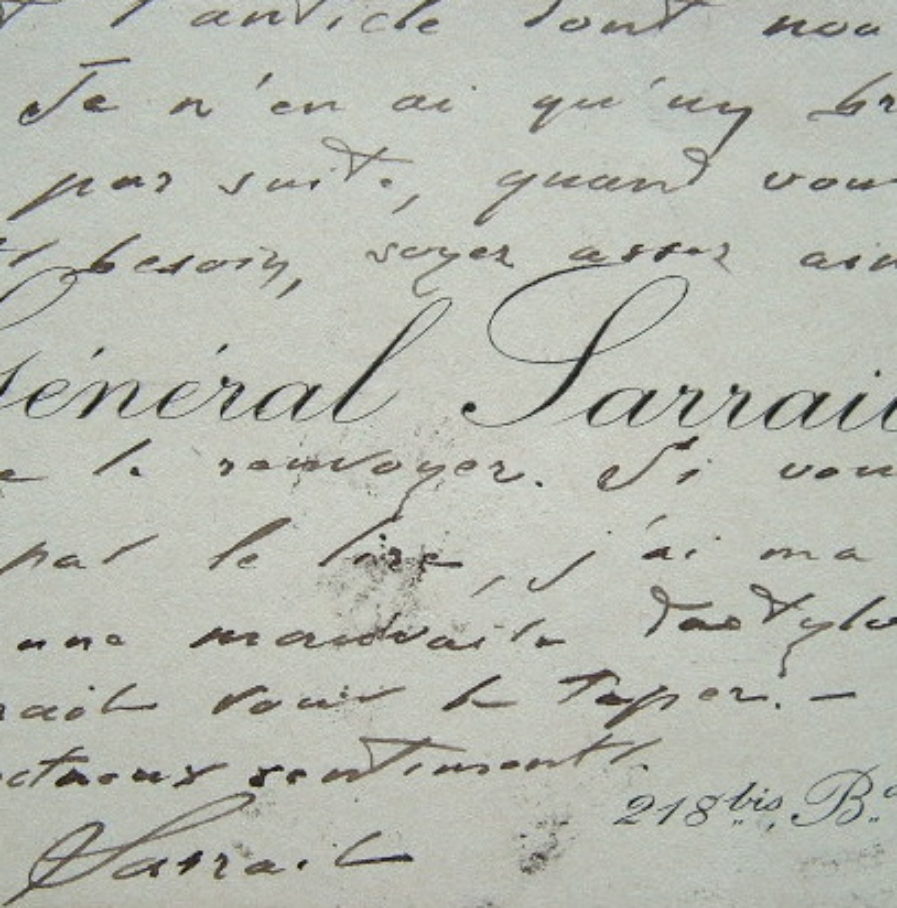 l'article dont nou
Je n'en ai qu'un br
par suite, quand vou
besoin, soyez assez aim
Général Sarrail
le renvoyer. Si vou
pas le lire, j'ai ma
une mauvaise dactylo
rait vous le taper. –
ctueux sentiments.
218 bis, B.d
Sarrail